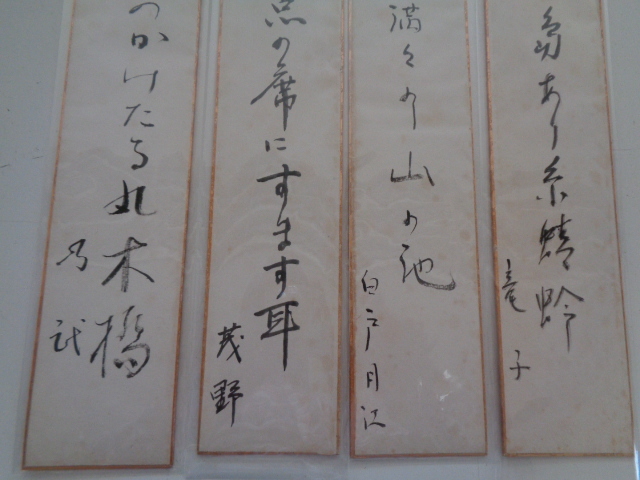 あり糸蜻蛉
竜子
満々の山の池
白戸月江
点の席にすます耳
茂野
のかけたる丸木橋
乃武